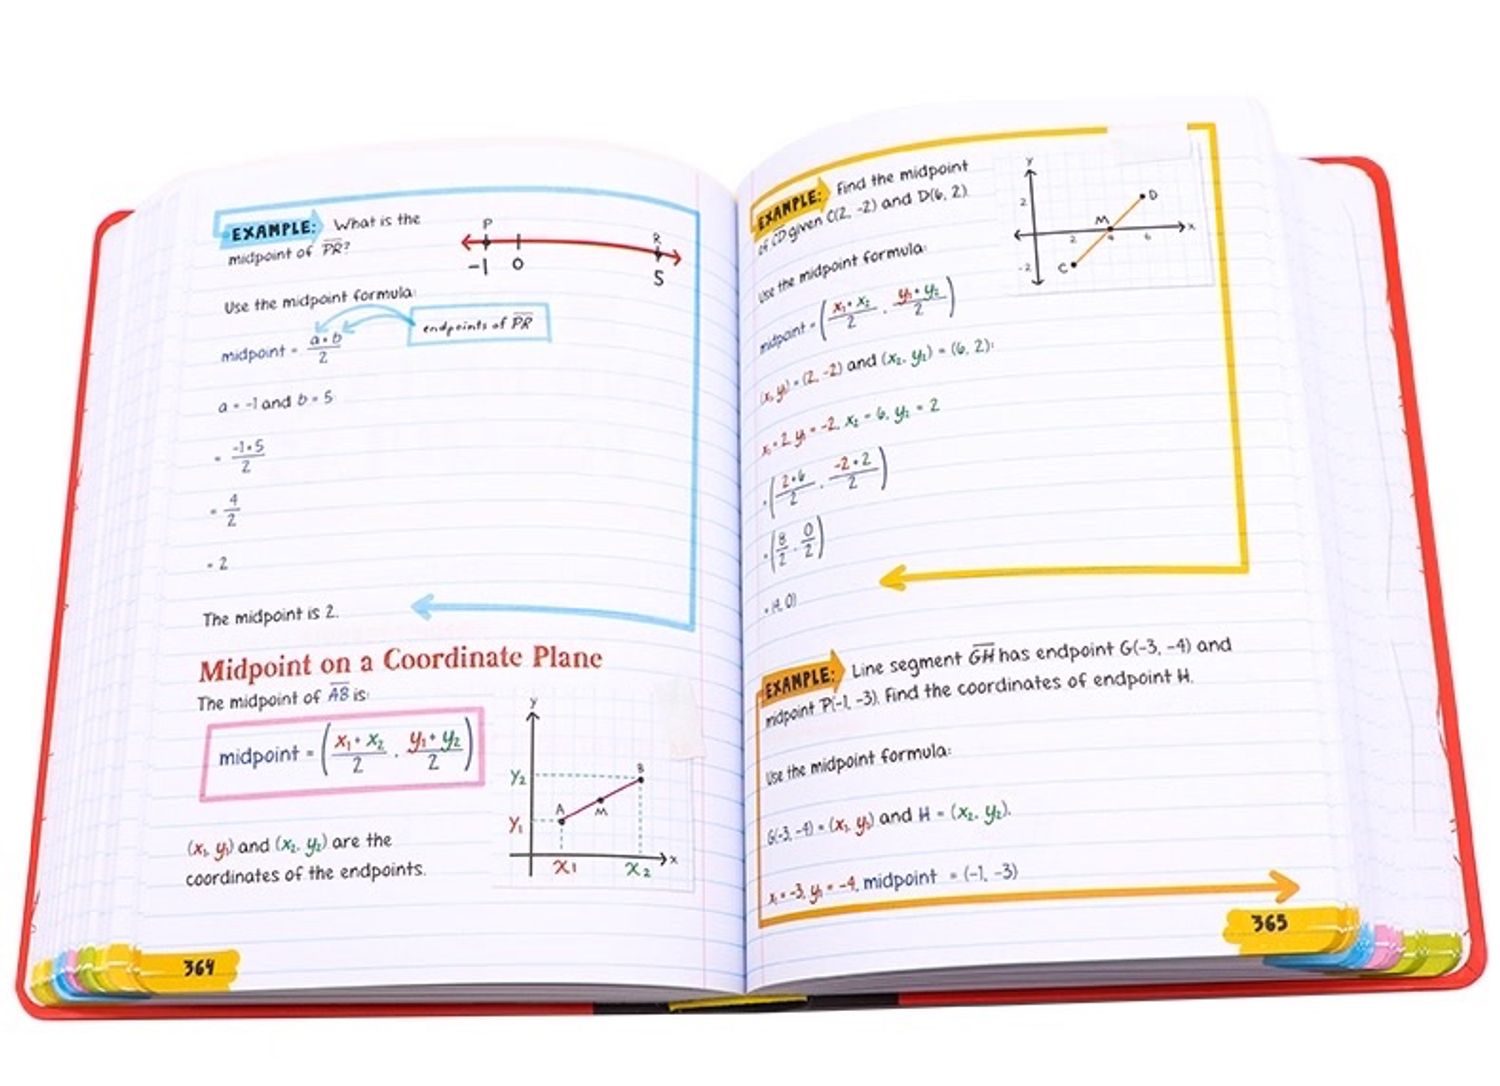 EXAMPLE: What is the
midpoint of PR?
P
R
-1 0
5
Use the midpoint formula:
midpoint = a + b / 2
endpoints of PR
a = -1 and b = 5
= -1 + 5 / 2
= 4 / 2
= 2
The midpoint is 2.
Midpoint on a Coordinate Plane
The midpoint of AB is:
midpoint = (x₁ + x₂ / 2 , y₁ + y₂ / 2)
(x₁, y₁) and (x₂, y₂) are the
coordinates of the endpoints.
y
y₂
B
A
M
y₁
x
x₁ x₂
364
EXAMPLE: Find the midpoint
of CD given C(2, -2) and D(6, 2).
y
2
D
M
x
2 4 6
-2
C
Use the midpoint formula:
midpoint = (x₁ + x₂ / 2 , y₁ + y₂ / 2)
(x₁, y₁) = (2, -2) and (x₂, y₂) = (6, 2):
x₁ = 2, y₁ = -2, x₂ = 6, y₂ = 2
= (2 + 6 / 2 , -2 + 2 / 2)
= (8 / 2 , 0 / 2)
= (4, 0)
EXAMPLE: Line segment GH has endpoint G(-3, -4) and
midpoint P(-1, -3). Find the coordinates of endpoint H.
Use the midpoint formula:
G(-3, -4) = (x₁, y₁) and H = (x₂, y₂).
x₁ = -3, y₁ = -4, midpoint = (-1, -3)
365